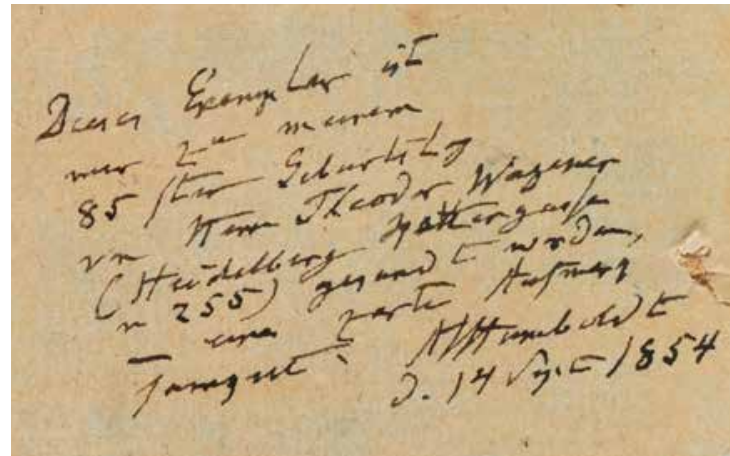 Dieses Exemplar ist
mir zu meinem
85 sten Geburtstag
von Herrn Theodor Wagener
(Heidelberg gasse
n 255) gesandt worden,
eine zarte Aufmerk
AvHumboldt
d. 14 Sept 1854